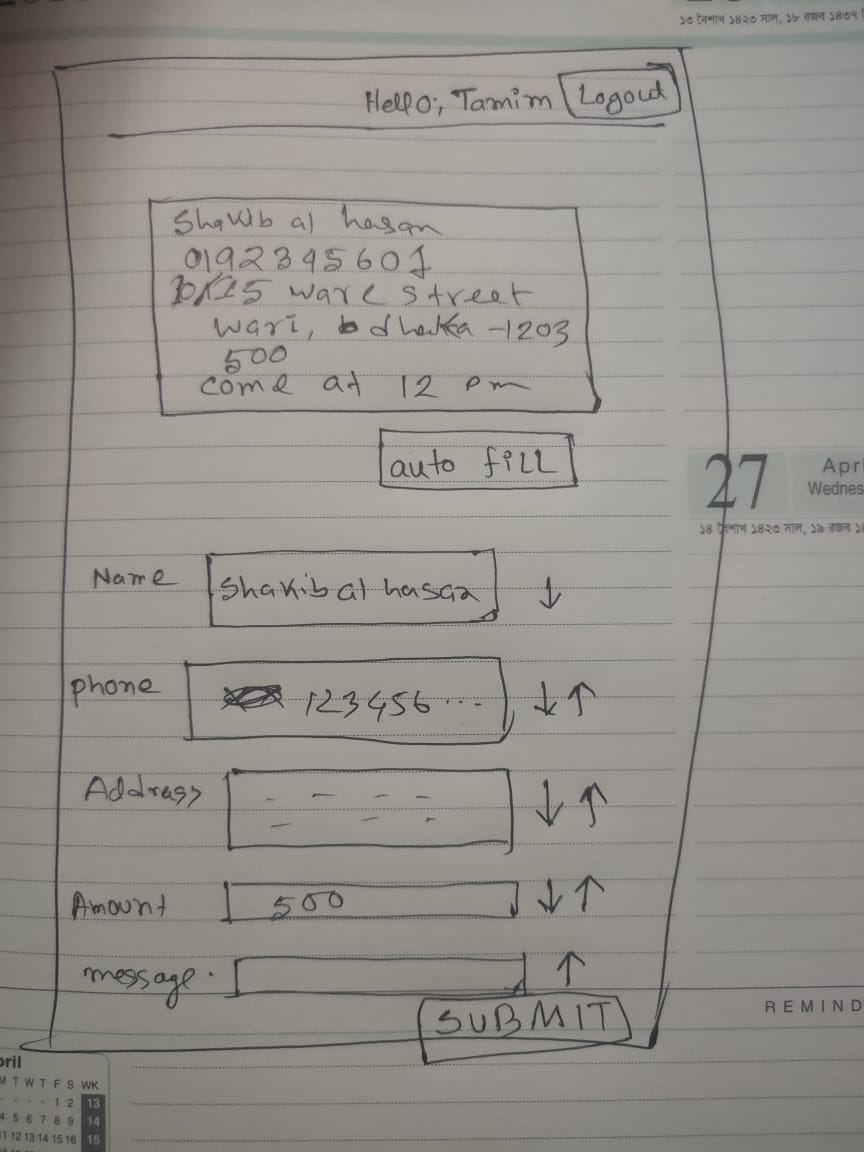 ১৩ বৈশাখ ১৪২৩ সাল, ১৮ রজব ১৪৩৭
Hello, Tamim Logout
Shakib al hasan
01923945601
10/15 ware street
wari, dhaka -1203
500
come at 12 pm
auto fill
27 Apri
Wednes
১৪ বৈশাখ ১৪২৩ সাল, ১৯ রজব ১৪
Name Shakib al hasan ↓
phone 123456... ↓↑
Address ↓↑
Amount 500 ↓↑
message. ↑
SUBMIT
REMIND
pril
M T W T F S WK
- - - - 1 2 13
4 5 6 7 8 9 14
11 12 13 14 15 16 15